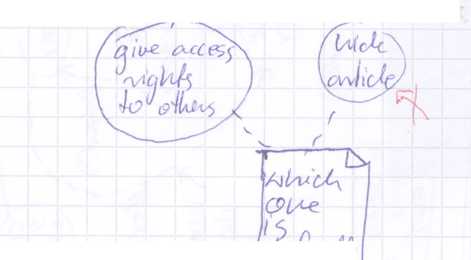 give access
rights
to others
hide
article
which
one
is